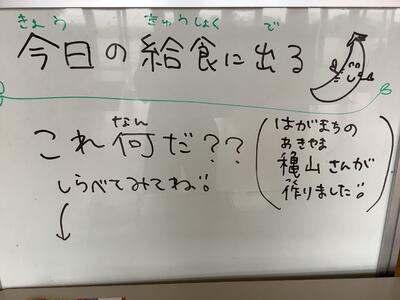 きょう きゅうしょく で
今日の給食に出る
なん
これ何だ??
しらべてみてね!!
(はがまちの
あきやま
穐山さんが
作りました!!)